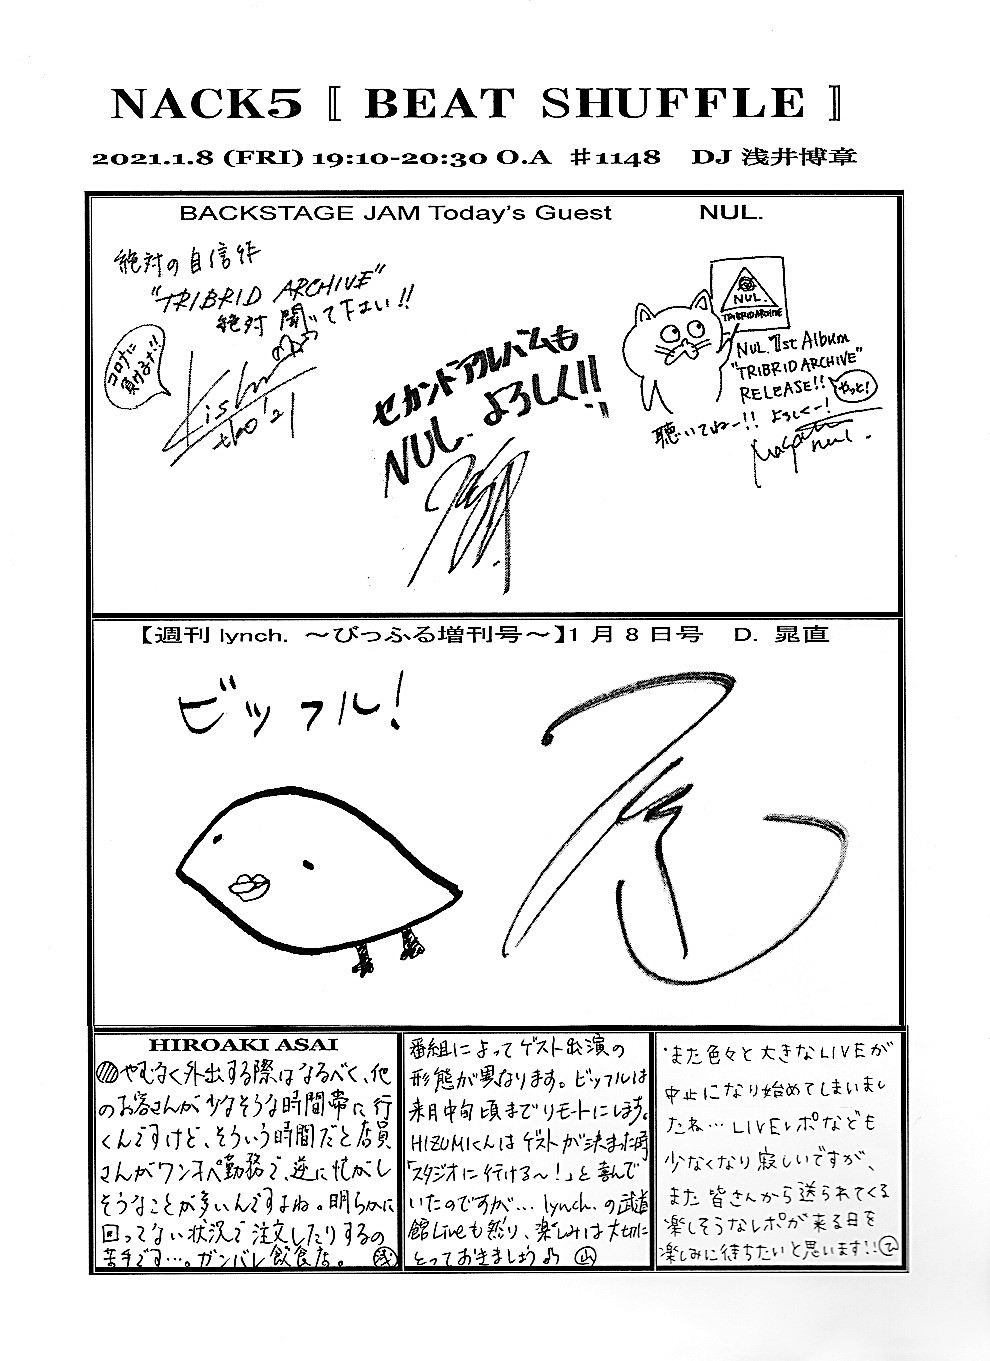 NACK5 〚 BEAT SHUFFLE 〛
2021.1.8 (FRI) 19:10-20:30 O.A ♯1148 DJ 浅井博章
BACKSTAGE JAM Today's Guest NUL.
絶対の自信作
"TRIBRID ARCHIVE"
絶対 聞いて下さい!!
コロナに
負けるな!!
セカンドアルバムも
NUL. よろしく!!
NUL.
TRIBRID ARCHIVE
NUL. 1st Album
"TRIBRID ARCHIVE"
RELEASE!! やっと!
聴いてねー!! よろしくー!
【週刊 lynch. ～びっふる増刊号～】1月8日号 D. 晁直
ビッフル!
HIROAKI ASAI
やむなく外出する際はなるべく、他
のお客さんが少なそうな時間帯に行
くんですけど、そういう時間だと店員
さんがワンオペ勤務で、逆に忙がし
そうなことが多いんですよね。明らかに
回ってない状況で注文したりするの
苦手です…。ガンバレ飲食店。
番組によってゲスト出演の
形態が異なります。ビッフルは
来月中旬頃までリモートにします。
HIZUMIくんはゲストが決まった時
「スタジオに行ける～!」と喜んで
いたのですが… lynch.の武道
館Liveも然り、楽しみは大切に
とっておきましょう 山
また色々と大きなLIVEが
中止になり始めてしまいまし
たね… LIVEレポなども
少なくなり寂しいですが、
また皆さんから送られてくる
楽しそうなレポが来る日を
楽しみに待ちたいと思います!!